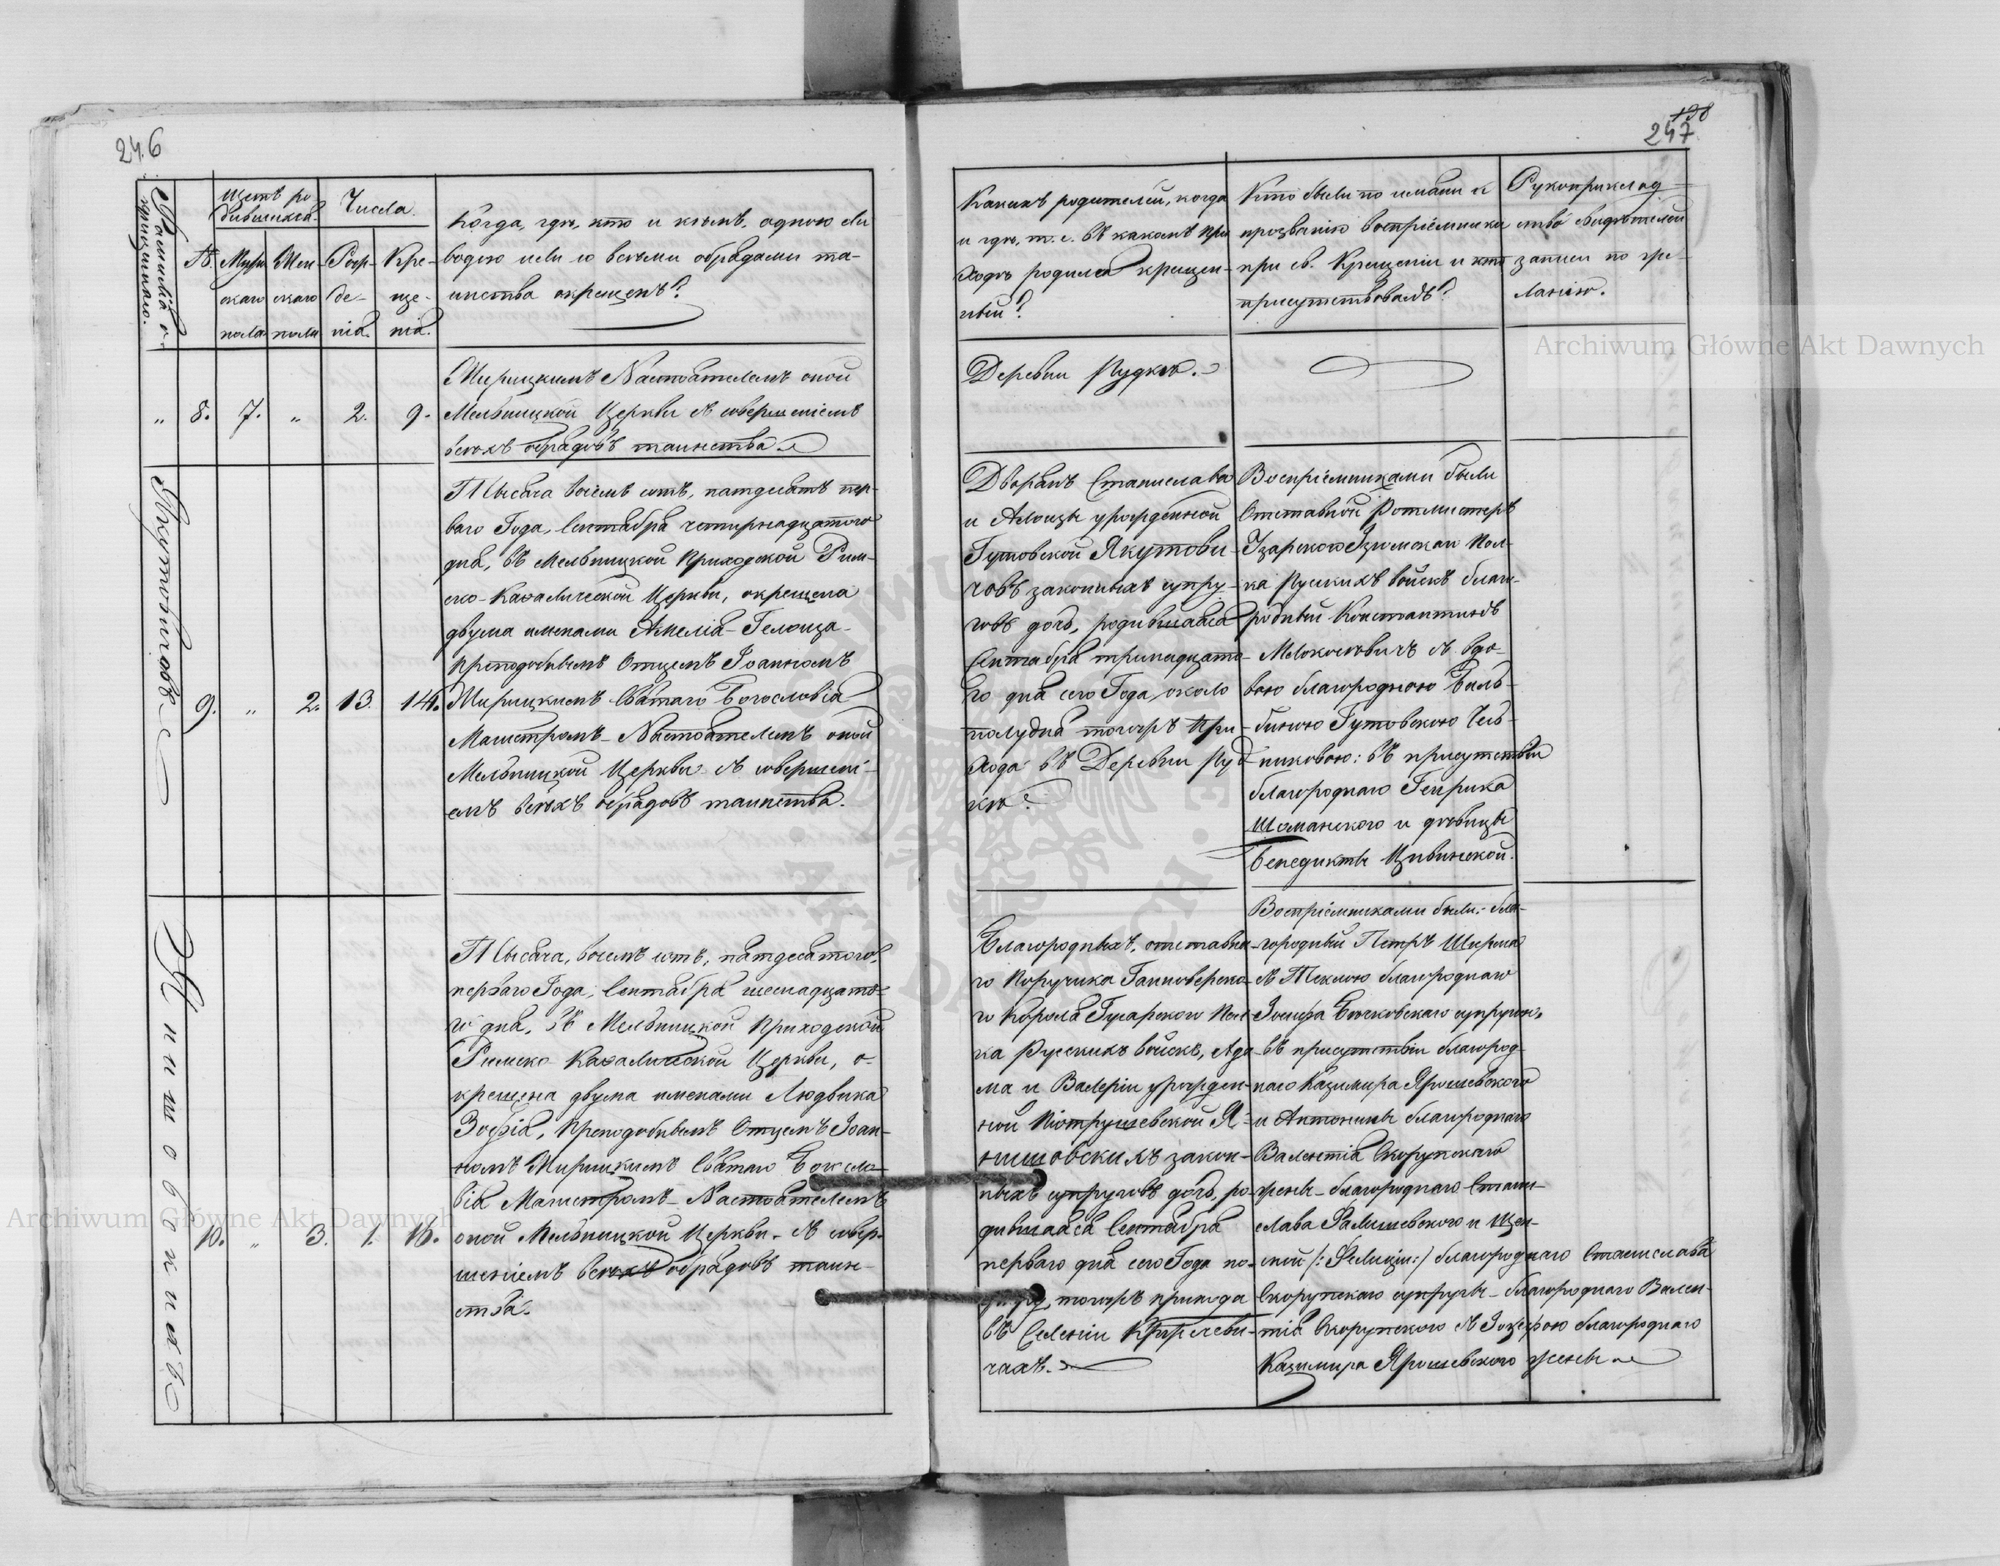 246
Фамилія о-
крещеннаго.
№.
Щетъ ро-
дившихся.
Мужескаго пола
Женскаго пола
Числа.
Рожденія.
Крещенія.
Когда, гдѣ, кто и кѣмъ, одною ли
водою или со всѣми обрядами та-
инства окрещенъ?
„ 8. 7. „ 2. 9.
Мирицкимъ Настоятелемъ оной
Мельницкой Церкви съ совершеніемъ
всѣхъ обрядовъ таинства.
Якутовичовъ
9. „ 2. 13. 14.
Тысяча восемь сотъ, пятдесятъ пер-
ваго Года, Сентября четырнадцатого
дня, въ Мельницкой Приходской Рим-
ско-Каѳалической Церкви, окрещена
двума именами Амелія-Гелоиза
Преподобнымъ Отцемъ Іоанномъ
Мирицкимъ Святаго Богословія
Магистромъ Настоятелемъ оной
Мельницкой Церкви съ совершені-
емъ всѣхъ обрядовъ таинства.
Янишовскихъ
10. „ 3. 1. 16.
Тысяча, восемь сотъ, пятдесятого,
перваго Года, Сентября шеснадцато-
го дня, въ Мельницкой Приходской
Римско Каѳалической Церкви, о-
крещена двума именами Людвика
Зофія, Преподобнымъ Отцемъ Іоан-
номъ Мирицкимъ Святаго Богосло-
вія Магистромъ Настоятелемъ
оной Мельницкой Церкви съ совер-
шеніемъ всѣхъ обрядовъ таин-
ства.
138
247
Какихъ родителей, когда
и гдѣ, т. е. въ какомъ при-
ходѣ родился крещен-
ный?
Кто были по имени и
прозванію воспріемники
при св. Крещеніи и кто
присутствовалъ?
Рукоприклад-
ство свидѣтелей
записи по же-
ланію.
Деревни Рудкѣ.
Дворянъ Станислава
и Алоизы урожденной
Гутовской Якутови-
човъ законныхъ супру-
говъ дочь, родившаяся
Сентября тринадцато-
го дня сего Года около
полудня тогожъ При-
хода въ Деревни Руд-
кѣ.
Воспріемниками были
Отставной Ротмистръ
Гусарского Изюмскаго Пол-
ка Рускихъ войскъ благо-
родный Константинъ
Молокосовичъ съ вдо-
вою благородною Баль-
биною Гутовскою Чесь-
никовою: въ присутствіи
благороднаго Генрика
Шоманского и дѣвицы
Бенедикты Цивинской.
Благородныхъ, отставна-
го Поручика Ганноверско-
го Короля Гусарского Пол-
ка Русскихъ войскъ, Ада-
ма и Валеріи урожден-
ной Піотрушевской Я-
нишовскихъ закон-
ныхъ супруговъ дочь, ро-
дившаяся Сентября
перваго дня сего Года по-
тогожъ прихода
въ Селеніи
чахъ.
Воспріемниками были: бла-
городный Петръ Ширма
съ Теклею благороднаго
Іосифа Бочковскаго супругою,
въ присутствіи благород-
наго Казимира Ярошевского
и Антонины благороднаго
Валентія Скорупского
жены благороднаго Стани-
слава Фалишевского и Щен-
сной /: Фелиціи :/ благороднаго Станислава
Скорупскаго супруги благороднаго Вален-
тія Скорупского съ Юзефою благороднаго
Казимира Ярошевского жены
Archiwum Główne Akt Dawnych
Archiwum Główne Akt Dawnych